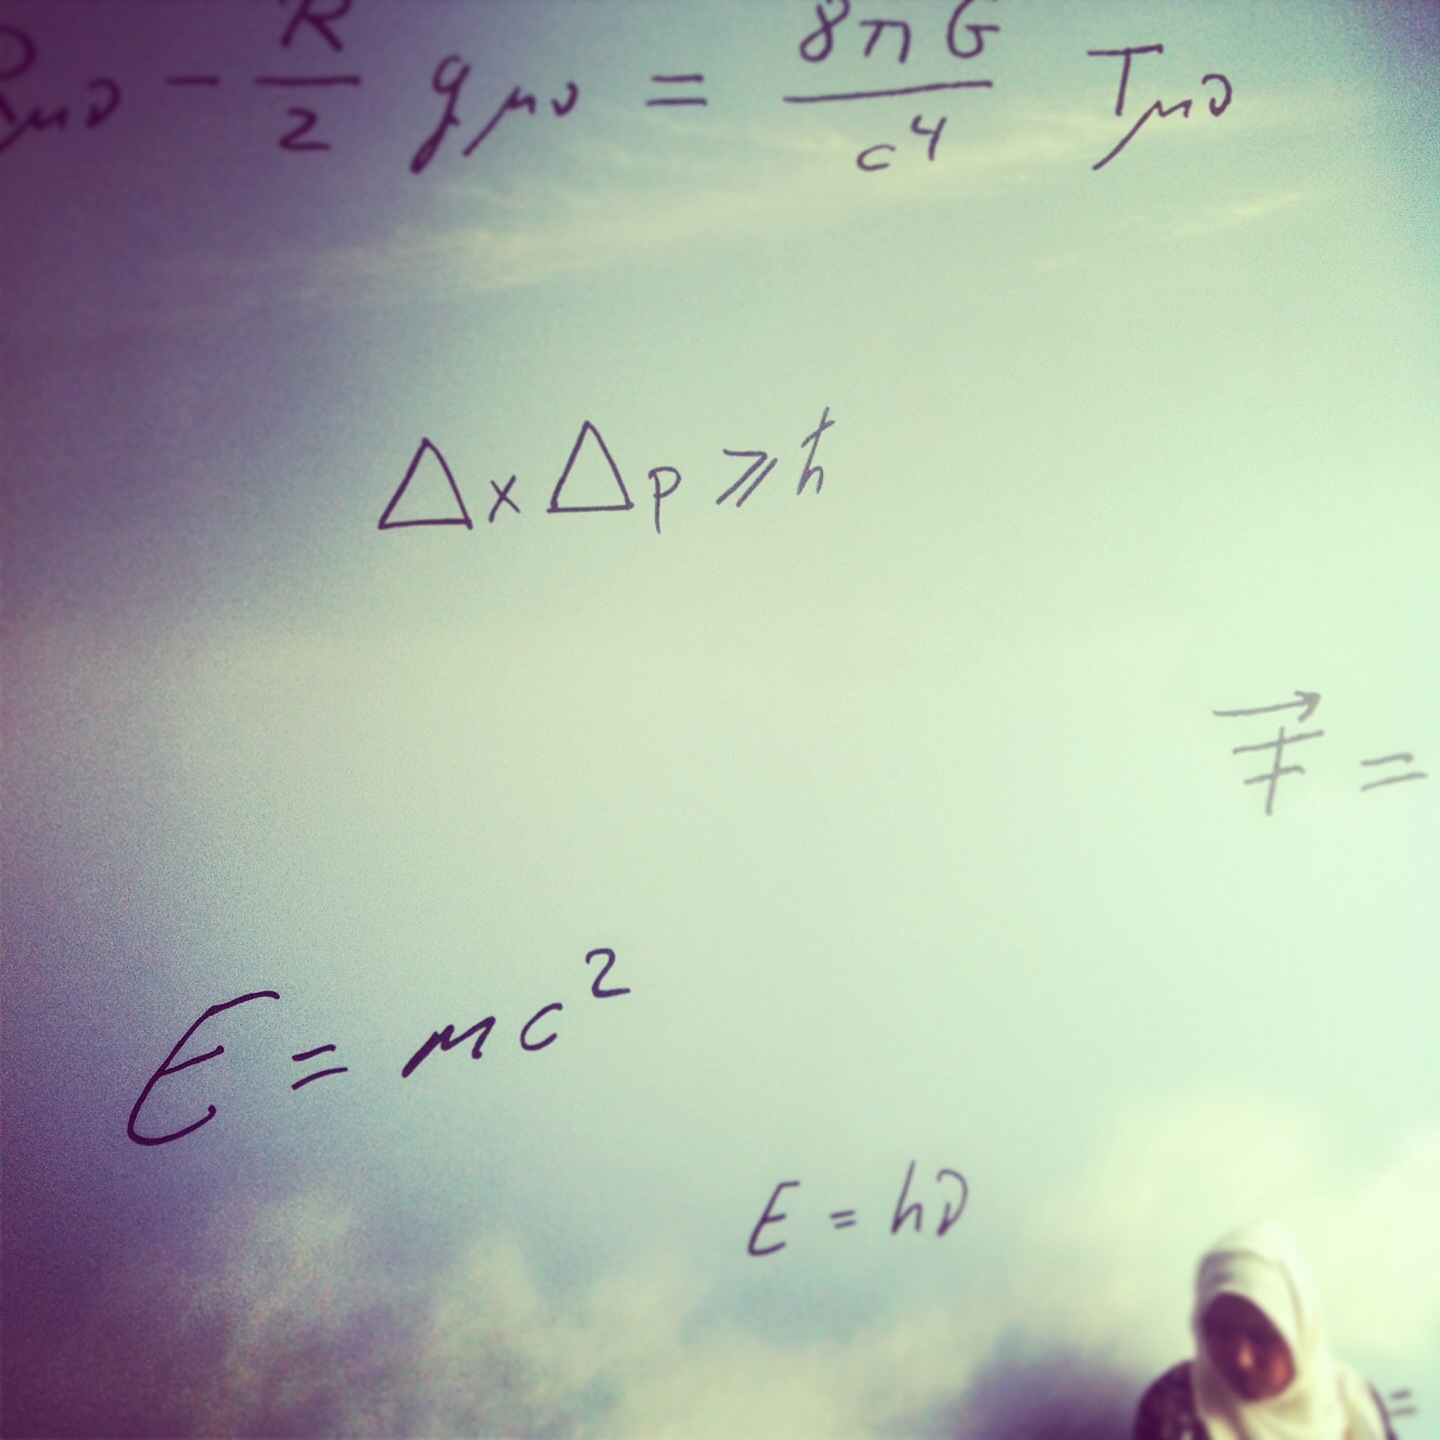 Rμν - R/2 gμν = 8πG/c⁴ Tμν
Δx Δp ⩾ ħ
F⃗ =
E = mc²
E = hν
=